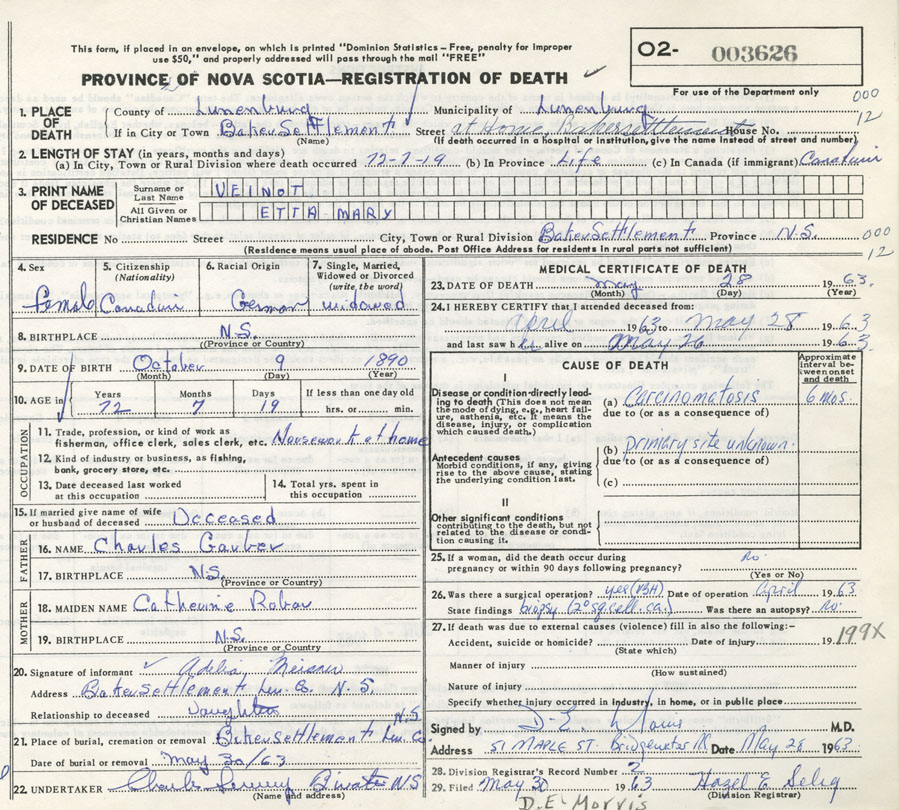 This form, if placed in an envelope, on which is printed "Dominion Statistics – Free, penalty for improper
use $50," and properly addressed will pass through the mail "FREE"
O2- 003626
PROVINCE OF NOVA SCOTIA—REGISTRATION OF DEATH
For use of the Department only
000
12
1. PLACE OF DEATH County of Lunenburg Municipality of Lunenburg
If in City or Town Baker Settlement Street at Home, Bakersettlement House No.
(Name) (If death occurred in a hospital or institution, give the name instead of street and number)
2. LENGTH OF STAY (in years, months and days)
(a) In City, Town or Rural Division where death occurred 72-7-19 (b) In Province Life (c) In Canada (if immigrant) Canadian
3. PRINT NAME OF DECEASED Surname or Last Name VEINOT
All Given or Christian Names ETTA MARY
RESIDENCE No Street City, Town or Rural Division Baker Settlement Province N.S.
000
12
(Residence means usual place of abode. Post Office Address for residents in rural parts not sufficient)
4. Sex Female
5. Citizenship (Nationality) Canadian
6. Racial Origin German
7. Single, Married, Widowed or Divorced (write the word) widowed
8. BIRTHPLACE N.S.
(Province or Country)
9. DATE OF BIRTH October 9 1890
(Month) (Day) (Year)
10. AGE in Years 72 Months 7 Days 19 If less than one day old hrs. or min.
OCCUPATION
11. Trade, profession, or kind of work as
fisherman, office clerk, sales clerk, etc. Housework at home
12. Kind of industry or business, as fishing,
bank, grocery store, etc.
13. Date deceased last worked at this occupation
14. Total yrs. spent in this occupation
15. If married give name of wife
or husband of deceased Deceased
FATHER
16. NAME Charles Garber
17. BIRTHPLACE N.S.
(Province or Country)
MOTHER
18. MAIDEN NAME Catherine Robar
19. BIRTHPLACE N.S.
(Province or Country)
20. Signature of informant Meisner
Address Baker Settlement Lun. Co. N.S.
Relationship to deceased Daughter
21. Place of burial, cremation or removal Baker Settlement Lun. Co. N.S
Date of burial or removal May 30/63
22. UNDERTAKER N.S
(Name and address)
MEDICAL CERTIFICATE OF DEATH
23. DATE OF DEATH May 28 1963
(Month) (Day) (Year)
24. I HEREBY CERTIFY that I attended deceased from:
April 1963 to May 28 1963
and last saw her alive on May 26 1963.
CAUSE OF DEATH
Approximate interval between onset and death
I
Disease or condition directly leading to death (This does not mean the mode of dying, e.g., heart failure, asthenia, etc. It means the disease, injury, or complication which caused death.)
(a) Carcinomatosis 6 mos.
due to (or as a consequence of)
Antecedent causes
Morbid conditions, if any, giving rise to the above cause, stating the underlying condition last.
(b) primary site unknown.
due to (or as a consequence of)
(c)
II
Other significant conditions
contributing to the death, but not related to the disease or condition causing it.
25. If a woman, did the death occur during
pregnancy or within 90 days following pregnancy? No.
(Yes or No)
26. Was there a surgical operation? yes Date of operation April 1963
State findings biopsy (2° sq. cell. ca.) Was there an autopsy? No.
27. If death was due to external causes (violence) fill in also the following:-
Accident, suicide or homicide? Date of injury 19
199X
(State which)
Manner of injury
(How sustained)
Nature of injury
Specify whether injury occurred in industry, in home, or in public place
Signed by D.E. Morris M.D.
Address 51 MAPLE ST. Bridgewater Date May 28 1963
28. Division Registrar's Record Number 2
29. Filed May 30 1963 Hazel E. Selig
(Division Registrar)
D.E. Morris